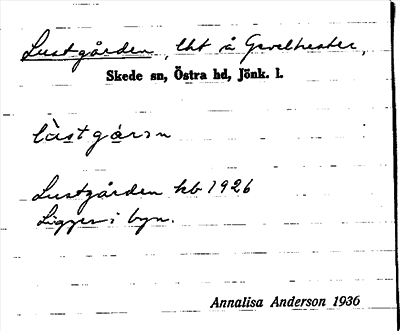 Lustgården, lht å Gaveltester,
Skede sn, Östra hd, Jönk. l.
lùstgá̀rɜn
Lustgården kb 1926
Ligger i byn.
Annalisa Anderson 1936